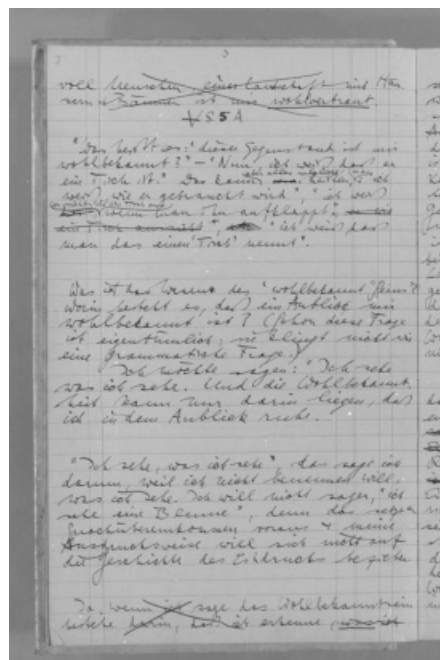 3
voll Menschen, einer Landschaft mit Häu
sern u Bäumen ist uns wohlvertraut.
S 5 A
"Was heißt es: 'dieser Gegenstand ist mir
wohlbekannt'?" – "Nun, ich weiß daß er
ein Tisch ist." Das kann alles mögliche heißen, ich
weiß, wie er gebraucht wird", "ich weiß
wenn man ihn aufklappt",
ein Tisch aussieht", "ich weiß daß
man das einen 'Tisch' nennt".
Was ist das Wesen des "wohlbekannt Seins"?
Worin besteht es, daß ein Anblick mir
wohlbekannt ist? (Schon diese Frage
ist eigentümlich; sie klingt nicht wie
eine grammatische Frage.)
Ich möchte sagen: "Ich sehe
was ich sehe. Und die Wohlbekannt
heit kann nur darin liegen, daß
ich in dem Anblick ruhe.
"Ich sehe, was ich sehe", das sage ich
darum, weil ich nicht benennen will,
was ich sehe. Ich will nicht sagen, "ich
sehe eine Blume", denn das setzt
voraus & meine
Ausdrucksweise will sich nicht auf
die Geschichte des Eindrucks beziehen
Da, wenn ich sage das Wohlbekanntsein
bestehe darin, daß ich erkenne, was ich